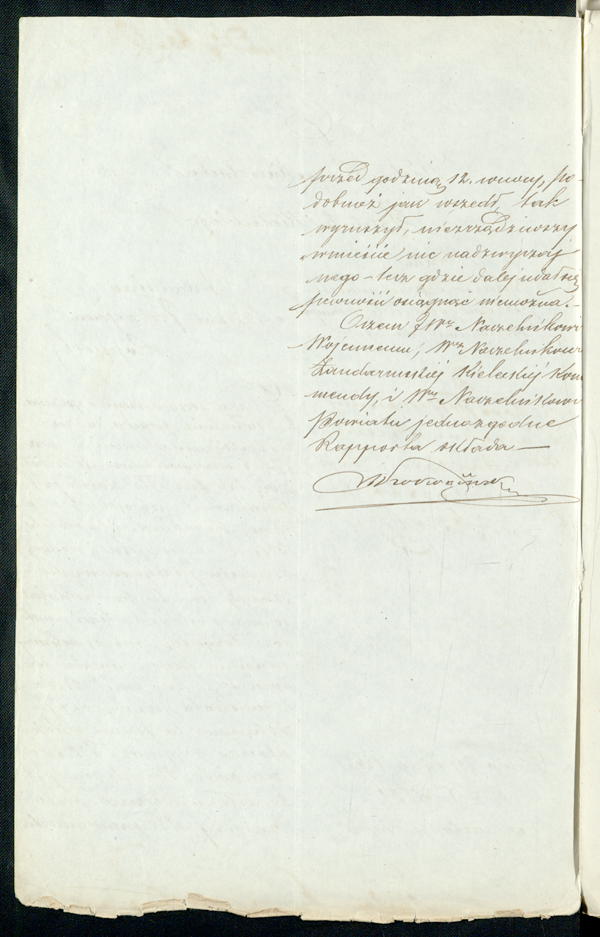 przed godziną 12. w nocy, po-
dobnież jak wszedł, tak
wyruszył, niezrządziwszy
w mieście nic nadzwyczaj
nego – lecz gdzie dalej udał się
pewność osiągnąć niemożna. –
O czem JWu Naczelnikowi
Wojennemu, Wu Naczelnikowi
Żandarmskiej Kieleckiej Kom
mendy, i Wmu Naczelnikowi
Powiatu jednozgodne
Rapporta składa —